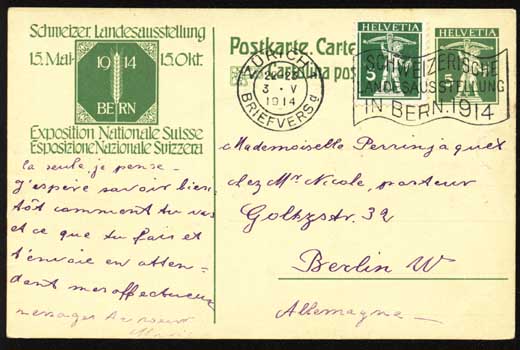 Schweizer. Landesausstellung
15. Mai 15. Okt.
1914
BERN
Exposition Nationale Suisse
Esposizione Nazionale Svizzera
Postkarte. Carte
Cartolina pos
HELVETIA
5
HELVETIA
5
ZÜRICH
3 · V
1914
BRIEFVERS
SCHWEIZERISCHE
LANDESAUSSTELLUNG
IN BERN. 1914
Mademoiselle Perrinjaquet
chez Mr Nicole, pasteur
Goltzstr. 32
Berlin W
Allemagne
la seule, je pense –
j'espère savoir bien
tôt comment tu vas
et ce que tu fais et
t'envoie en atten =
dant mes affectueux
messages